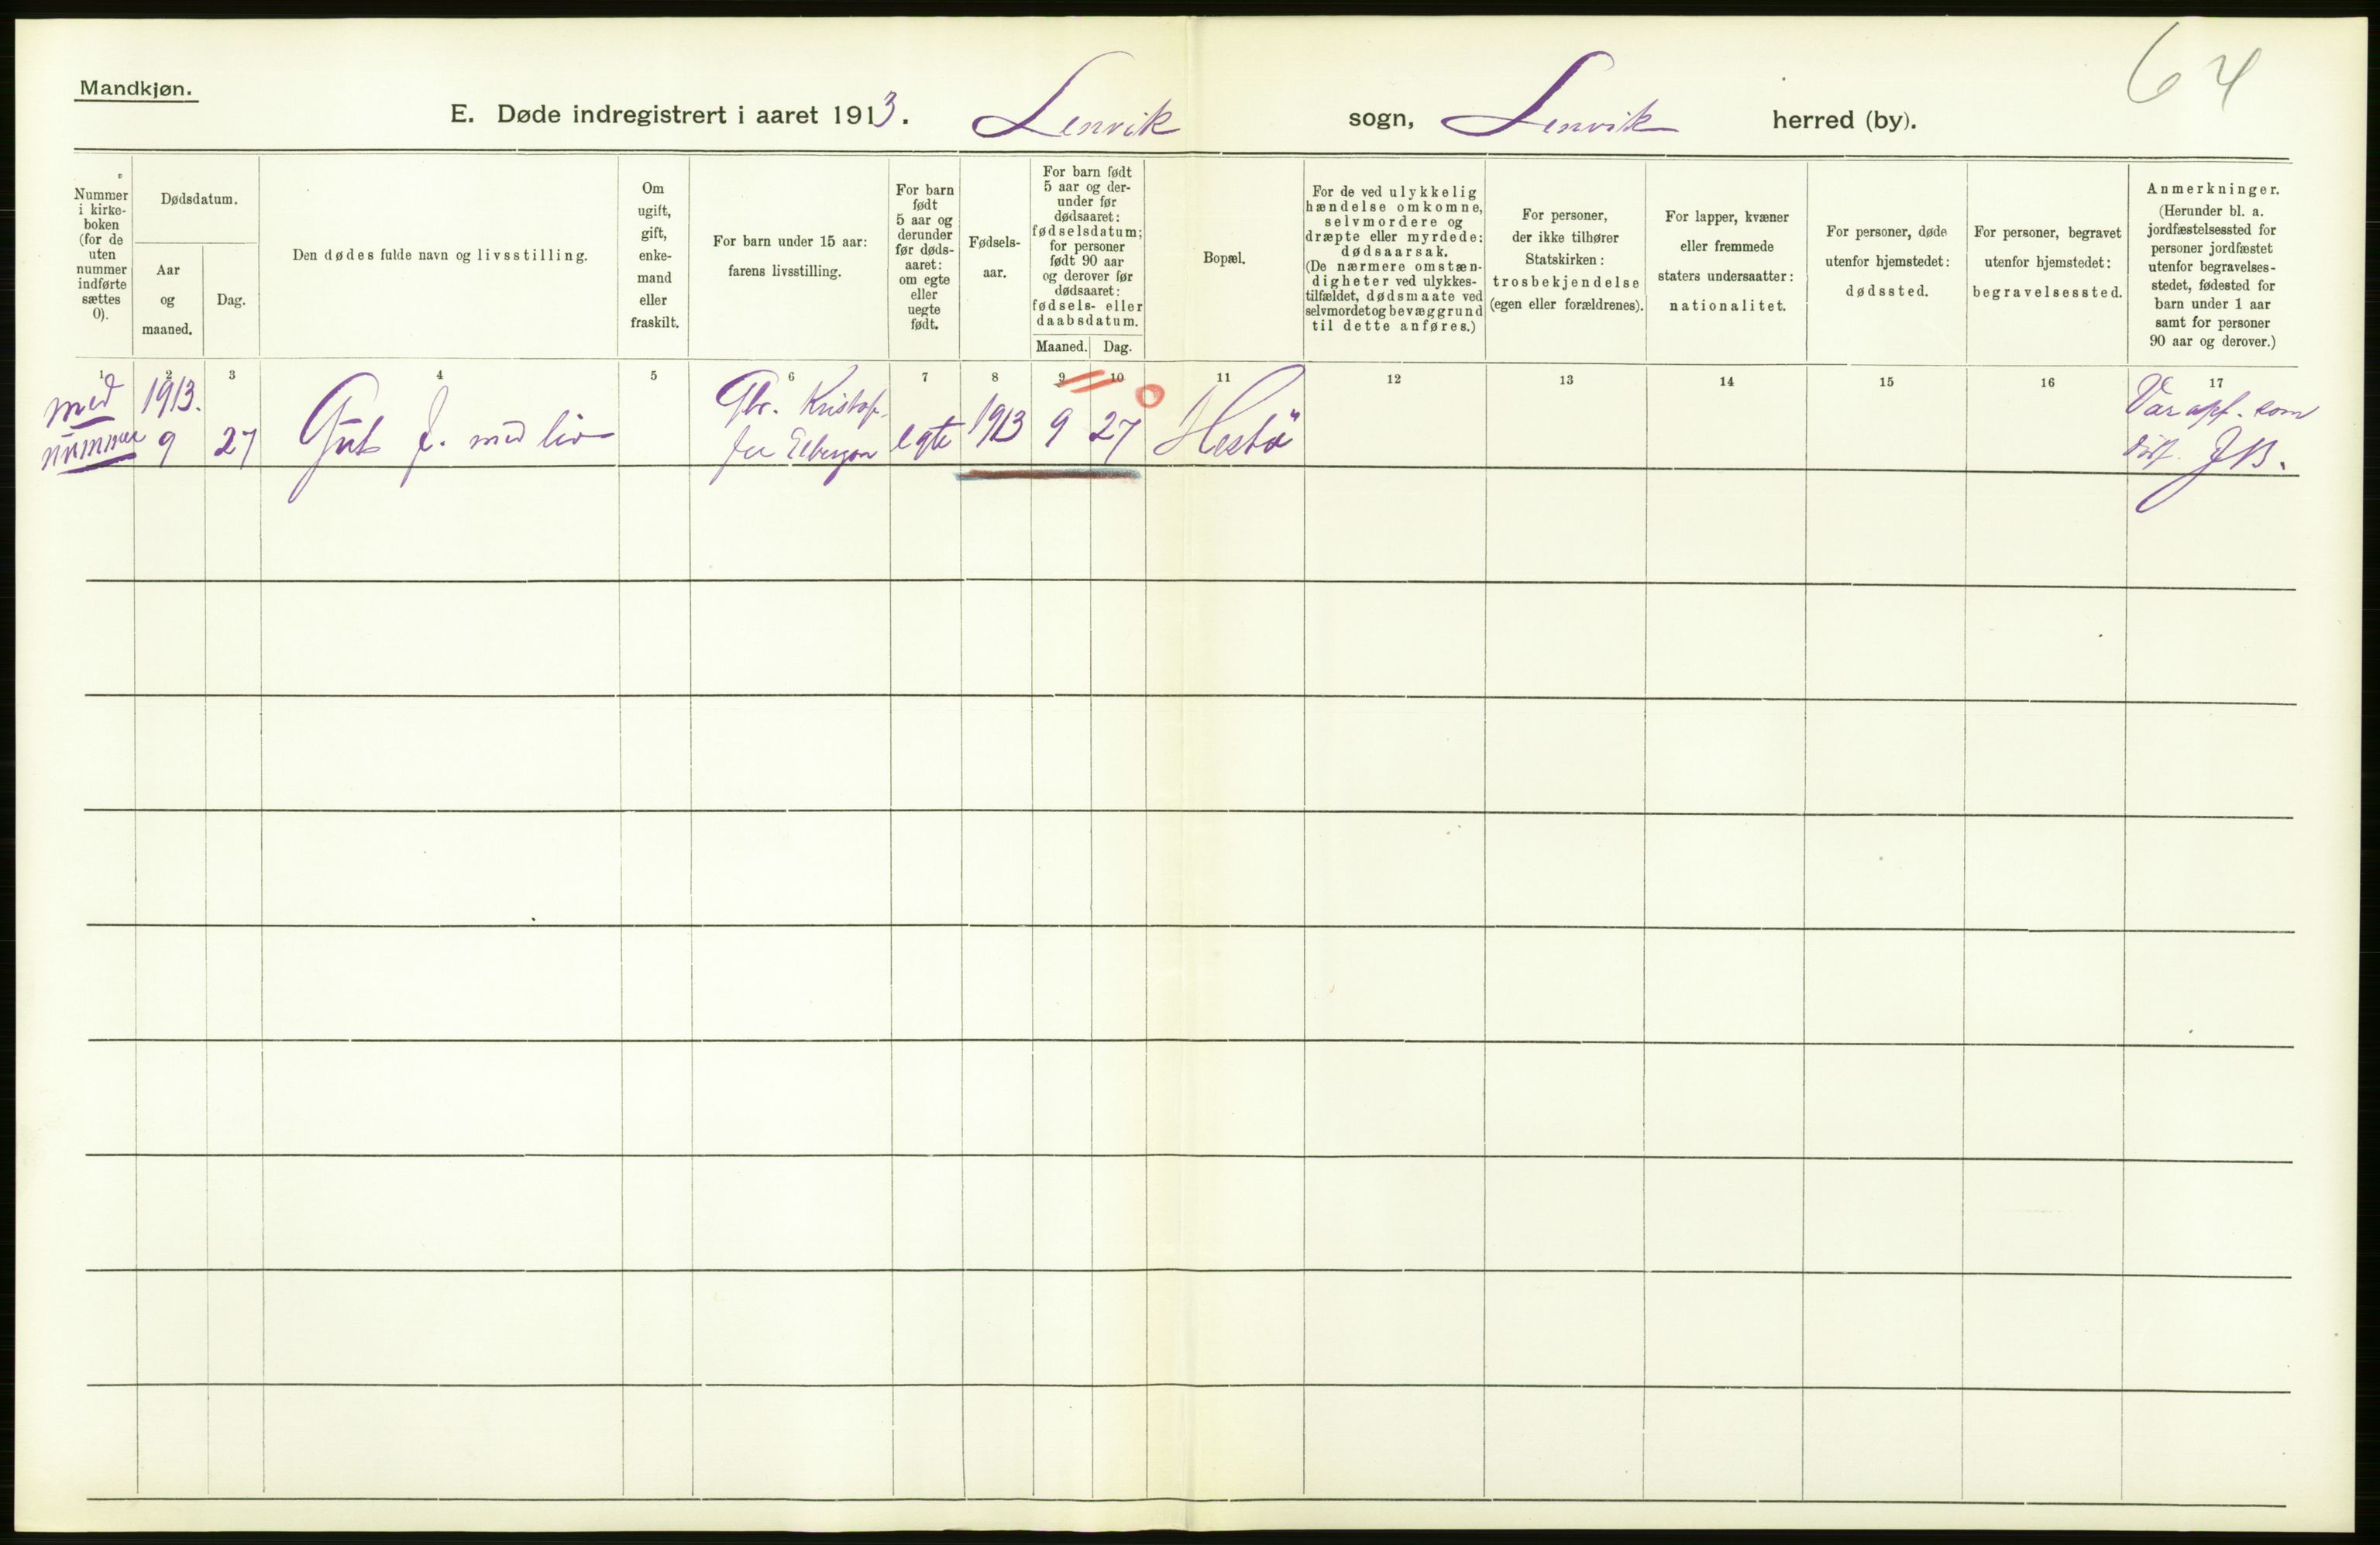 Mandkjøn.
64
E. Døde indregistrert i aaret 1913. Lenvik sogn, Lenvik herred (by).
Nummer
i kirke-
boken
(for de
uten
nummer
indførte
sættes
0).
Dødsdatum.
Aar
og
maaned.
Dag.
Den dødes fulde navn og livsstilling.
Om
ugift,
gift,
enke-
mand
eller
fraskilt.
For barn under 15 aar:
farens livsstilling.
For barn
født
5 aar og
derunder
før døds-
aaret:
om egte
eller
uegte
født.
Fødsels-
aar.
For barn født
5 aar og der-
under før
dødsaaret:
fødselsdatum;
for personer
født 90 aar
og derover før
dødsaaret:
fødsels- eller
daabsdatum.
Maaned. Dag.
Bopæl.
For de ved ulykkelig
hændelse omkomne,
selvmordere og
dræpte eller myrdede:
dødsaarsak.
(De nærmere omstæn-
digheter ved ulykkes-
tilfældet, dødsmaate ved
selvmordet og bevæggrund
til dette anføres.)
For personer,
der ikke tilhører
Statskirken:
trosbekjendelse
(egen eller forældrenes).
For lapper, kvæner
eller fremmede
staters undersaatter:
nationalitet.
For personer, døde
utenfor hjemstedet:
dødssted.
For personer, begravet
utenfor hjemstedet:
begravelsessted.
Anmerkninger.
(Herunder bl. a.
jordfæstelsessted for
personer jordfæstet
utenfor begravelses-
stedet, fødested for
barn under 1 aar
samt for personer
90 aar og derover.)
1 2 3 4 5 6 7 8 9 10 11 12 13 14 15 16 17
med 1913. Gbr. Kristof- 0 Var opf. som
nummer 9 27 Gut f. med liv fer egte 1913 9 27 Hestö